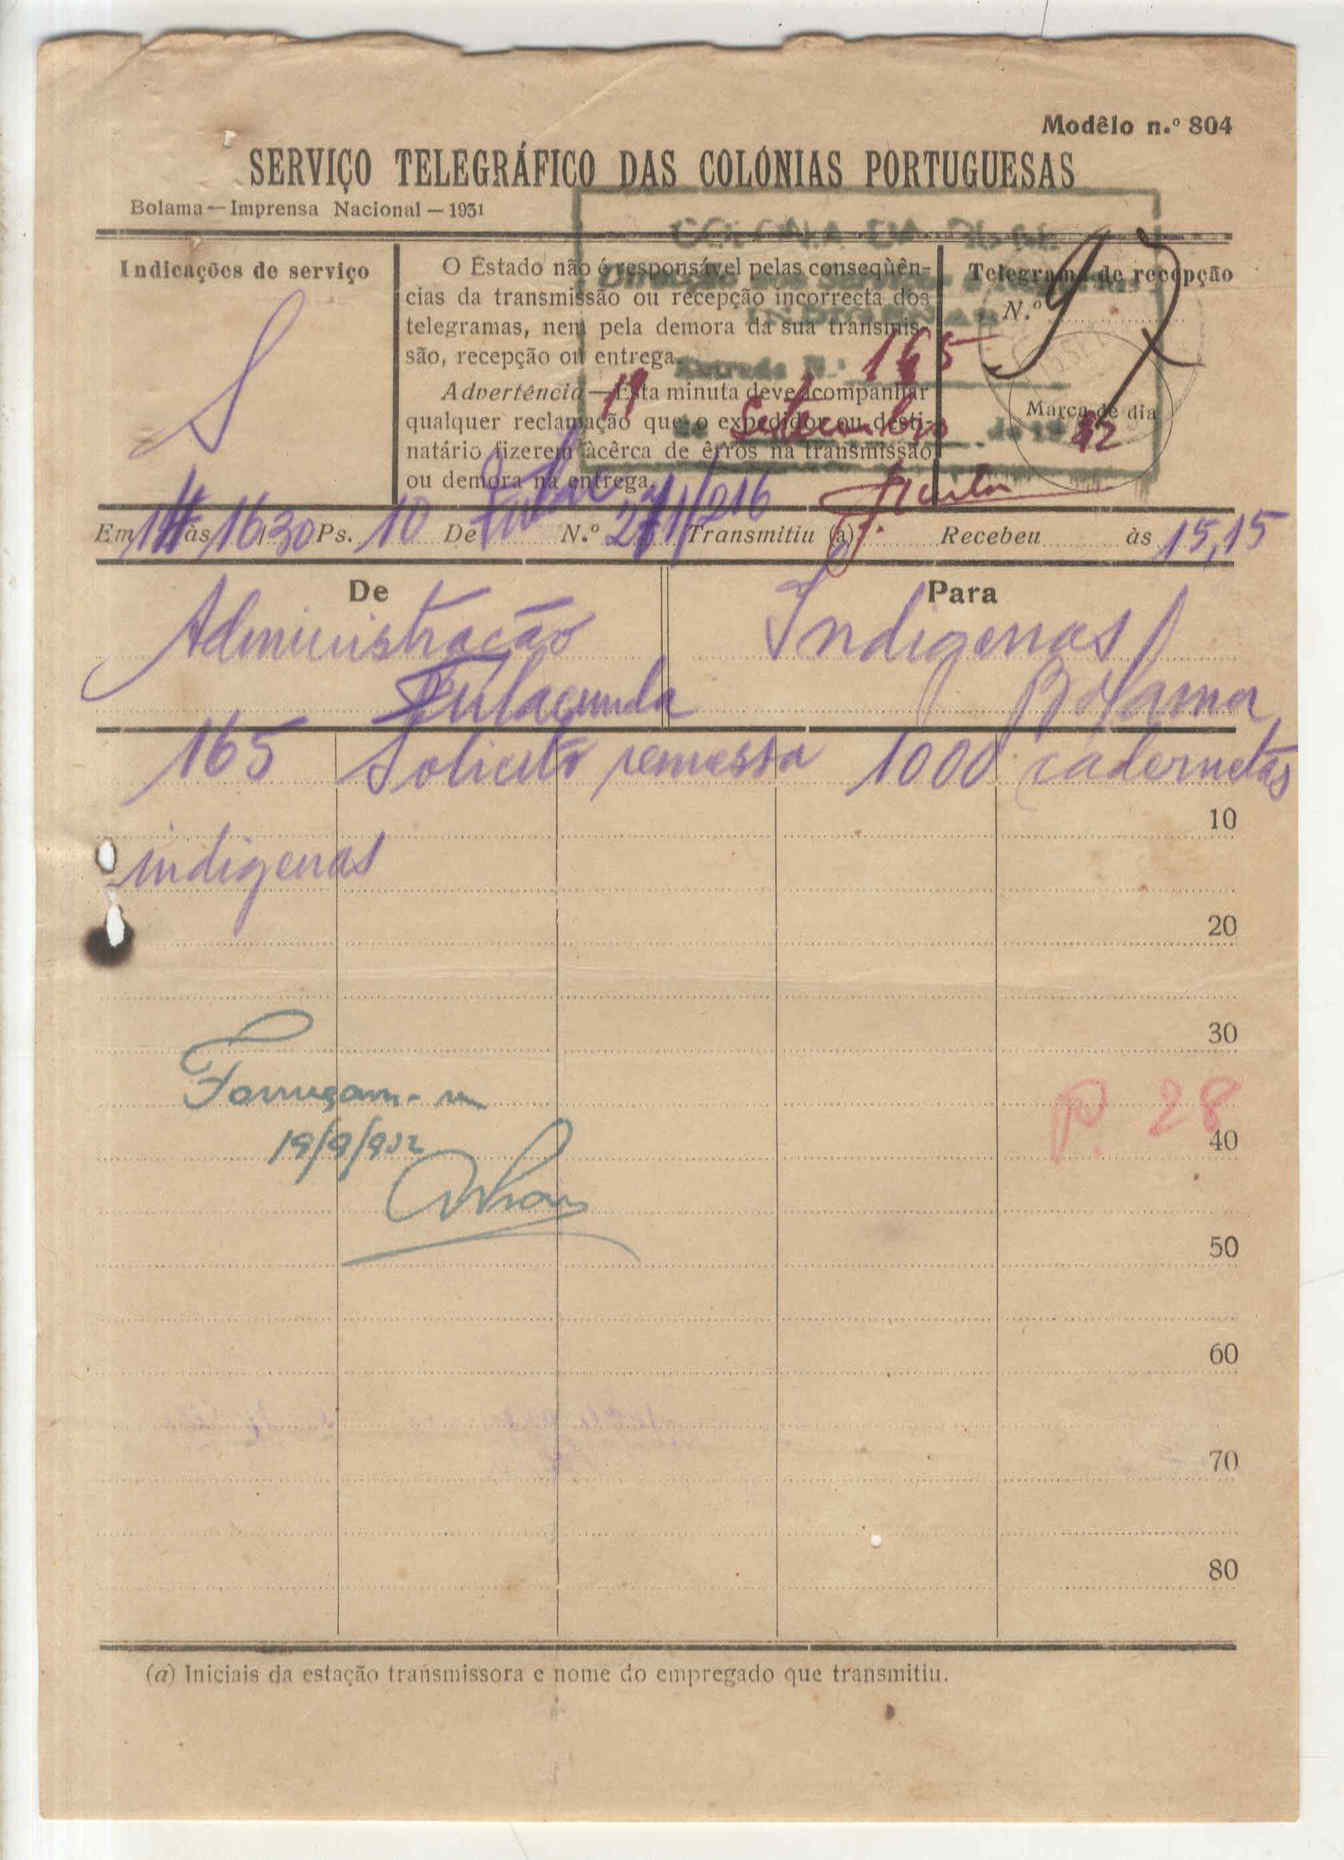 Modêlo n.º 804
SERVIÇO TELEGRÁFICO DAS COLÓNIAS PORTUGUESAS
Bolama — Imprensa Nacional — 1931
Indicações de serviço
S
O Estado não é responsável pelas conseqüên-
cias da transmissão ou recepção incorrecta dos
telegramas, nem pela demora da sua transmis-
são, recepção ou entrega.
Advertência — Esta minuta deve acompanhar
qualquer reclamação que o expedidor ou desti-
natário fizerem àcêrca de êrros na transmissão
ou demora na entrega.
Telegrama de recepção
N.º 97
Marca de dia
INDIGENAS
Entrada N.º 165
19 de Setembro de 19 32
Em às 16,30 Ps. 10 De N.º 216 Transmitiu (a) Recebeu às 15,15
De
Administração
Fulacunda
Para
Indigenas
Bolama
165 Solicito remessa 1000 cadernetas
indigenas
10
20
30
40
50
60
70
80
Forneçam-se
19/9/932
P. 28
(a) Iniciais da estação transmissora e nome do empregado que transmitiu.